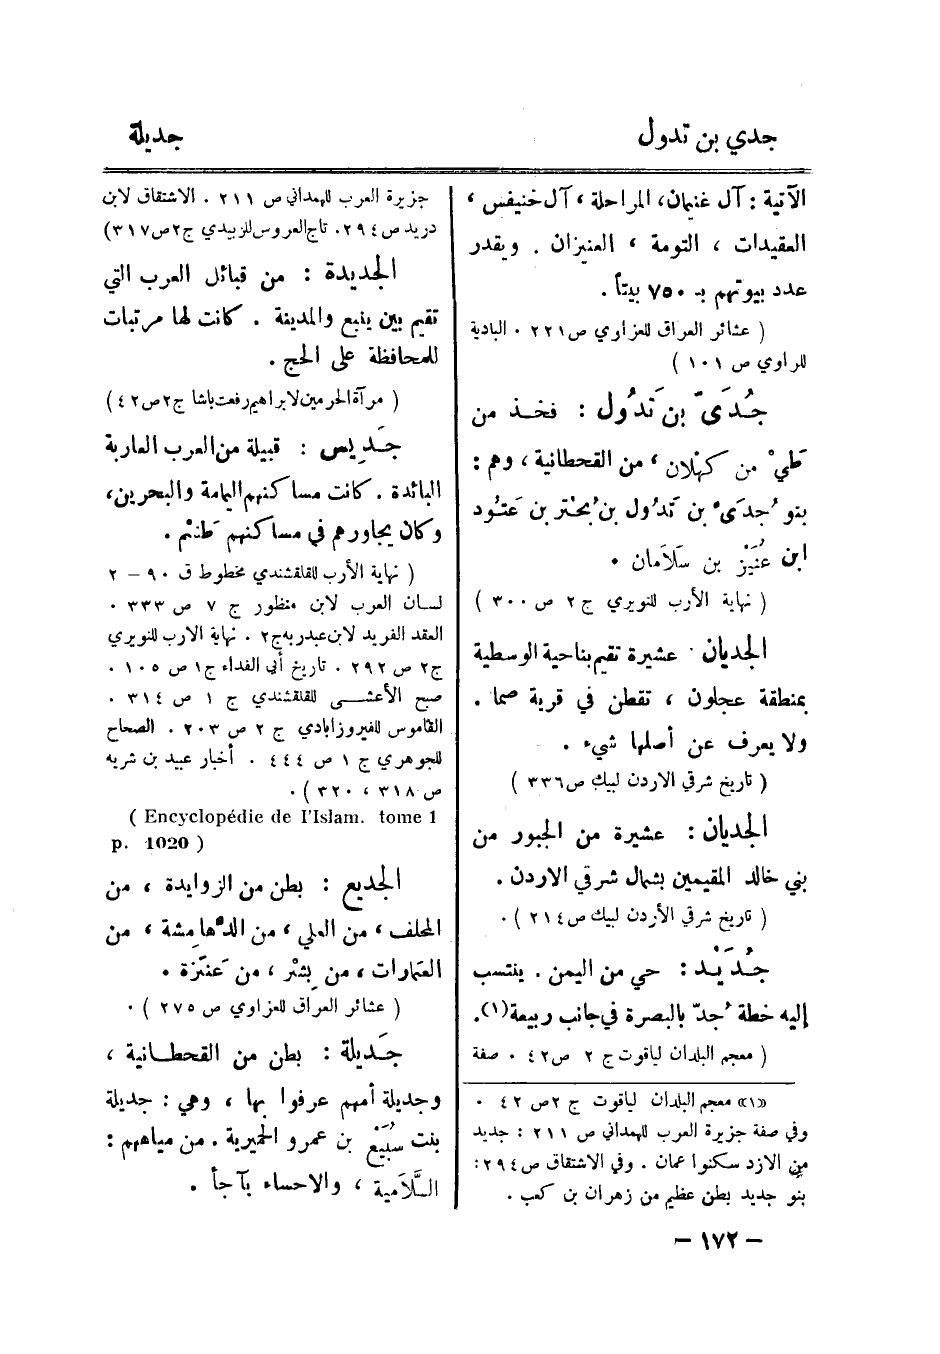 جدي بن تدول
جديلة
الآتية : آل غنيمان، المراحلة ، آل خنيفس ،
العقيدات ، التومة ، العنيزان . ويقدر
عدد بيوتهم بـ ٧٥٠ بيتاً .
( عشائر العراق للعزاوي ص ٢٢١ . البادية
للراوي ص ١٠١ )
جُدَيّ بن تَدُول : فخذ من
طيء من كَهْلان ، من القحطانية ، وهم :
بنو جُدَيّ بن تَدُول بن بُحْتر بن عَتُود
ابن عُنَيْز بن سَلَامان .
( نهاية الأرب للنويري ج ٢ ص ٣٠٠ )
الجديان : عشيرة تقيم بناحية الوسطية
بمنطقة عجلون ، تقطن في قرية صما .
ولا يعرف عن أصلها شيء .
( تاريخ شرقي الاردن لبيك ص ٣٣٦ )
الجديان : عشيرة من الجبور من
بني خالد المقيمين بشمال شرقي الاردن .
( تاريخ شرقي الأردن لبيك ص ٢١٤ ) .
جُدَيْد : حي من اليمن . ينتسب
إليه خطة جُدّ بالبصرة في جانب ربيعة (١).
( معجم البلدان لياقوت ج ٢ ص ٤٢ . صفة
«١» معجم البلدان لياقوت ج ٢ ص ٤٢ .
وفي صفة جزيرة العرب للهمداني ص ٢١١ : جديد
من الازد سكنوا عمان . وفي الاشتقاق ص ٢٩٤ :
بنو جديد بطن عظيم من زهران بن كعب .
جزيرة العرب للهمداني ص ٢١١ . الاشتقاق لابن
دريد ص ٢٩٤ . تاج العروس للزبيدي ج ٢ ص ٣١٧)
الجديدة : من قبائل العرب التي
تقيم بين ينبع والمدينة . كانت لها مرتبات
للمحافظة على الحج .
( مرآة الحرمين لابراهيم رفعت باشا ج ٢ ص ٤٢ )
جَدِيس : قبيلة من العرب العاربة
البائدة . كانت مساكنهم اليمامة والبحرين،
وكان يجاورهم في مساكنهم طَسْم .
( نهاية الأرب للقلقشندي مخطوط ق ٩٠ – ٢
لسان العرب لابن منظور ج ٧ ص ٣٣٣ .
العقد الفريد لابن عبدربه ج ٢ . نهاية الارب للنويري
ج ٢ ص ٢٩٢ . تاريخ أبي الفداء ج ١ ص ١٠٥ .
صبح الأعشى للقلقشندي ج ١ ص ٣١٤ .
القاموس للفيروزابادي ج ٢ ص ٢٠٣ . الصحاح
للجوهري ج ١ ص ٤٤٤ . أخبار عبيد بن شريه
ص ٣١٨ ، ٣٢٠ ) .
( Encyclopédie de l'Islam. tome 1
p. 1020 )
الجديع : بطن من الزوايدة ، من
المحلف ، من العلي ، من الدهامشة ، من
العمارات ، من بِشْر ، من عَنَزة .
( عشائر العراق للعزاوي ص ٢٧٥ ) .
جَدِيلة : بطن من القحطانية ،
وجديلة أمهم عرفوا بها ، وهي : جديلة
بنت سُبَيْع بن عمرو الحميرية . من مياههم :
الثَّلَامية ، والاحساء بأجأ .
– ١٧٢ –